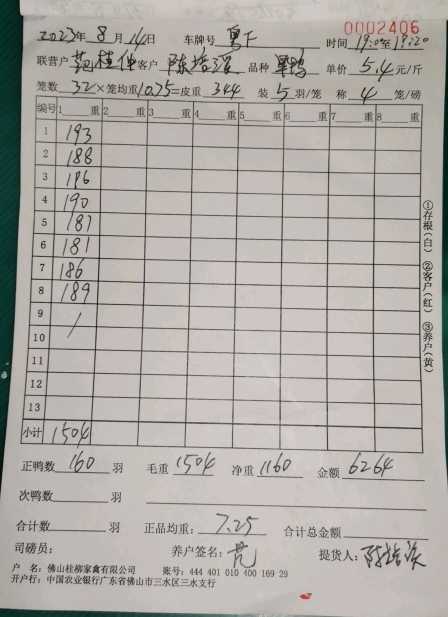 0002406
2023年8月14日 车牌号 粤F 时间 19:00至19:20
联营户 范桂 客户 陈培 品种 单价 5.4元/斤
笼数 32×笼均重10.75=皮重 344 装 5 羽/笼 称 4 笼/磅
编号 1 重 2 重 3 重 4 重 5 重 6 重 7 重 8 重
1 193
2 188
3 196
4 190
5 181
6 181
7 186
8 189
9
10
11
12
13
小计 1504
正鸭数 160 羽 毛重 1504 净重 1160 金额 6264
次鸭数 羽
合计数 羽 正品均重: 7.25 合计总金额
司磅员: 养户签名: 范 提货人: 陈培
户 名: 佛山桂柳家禽有限公司 账号: 444 401 010 400 169 29
开户行: 中国农业银行广东省佛山市三水区三水支行
①存根(白) ②客户(红) ③养户(黄)